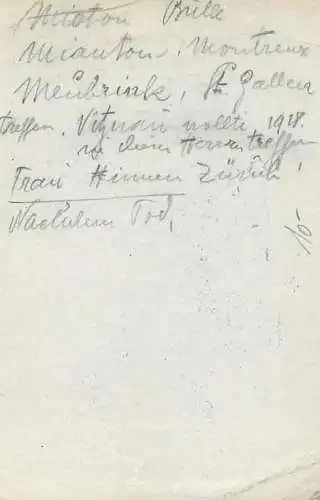 Mioton Bulle
Mianton, Montreux
Meubrink, St. Gallen
treffen, Vitznau wollte 1918.
sie dem Herrn treffen
Frau Hinnen Zürich,
Nach dem Tod,
10-